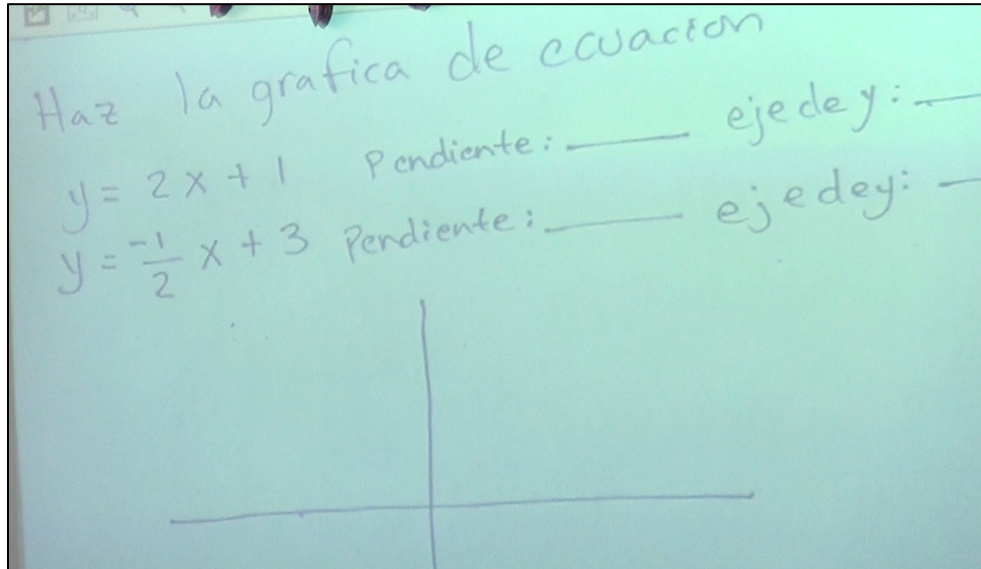 Haz la grafica de ecuacion
y = 2x + 1 Pendiente: ____ eje de y: ____
y = -1/2 x + 3 Pendiente: ____ eje de y: ____